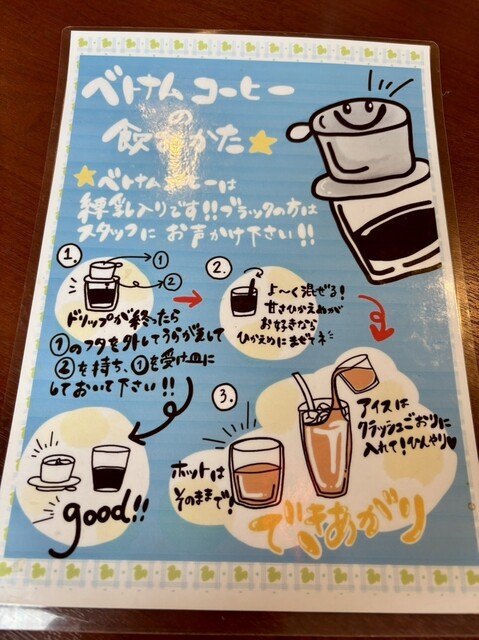 ベトナムコーヒー
の
飲みかた
★ベトナムコーヒーは
練乳入りです!!ブラックの方は
スタッフに お声かけ下さい!!
1.
①
②
ドリップが終ったら
①のフタを外してうらがえして
②を持ち、①を受け皿に
しておいて下さい!!
good!!
2.
よ〜く混ぜる!
甘さひかえめが
お好きなら
ひかえめにまぜてネ
3.
ホットは
そのままで!
アイスは
クラッシュごおりに
入れて!ひんやり♥
できあがり